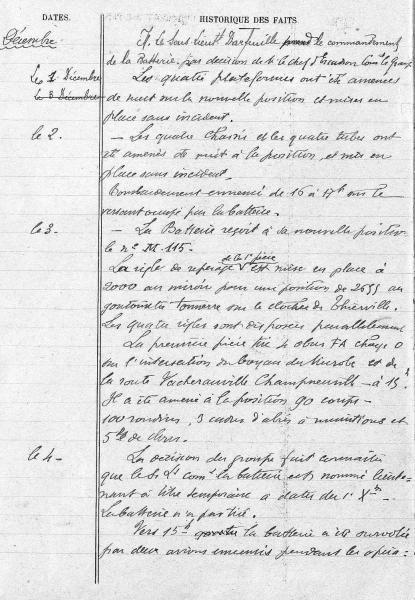 DATES.
HISTORIQUE DES FAITS
Décembre
M. le Sous Lieutt prend le commandement
de la Batterie, par décision de M. le chef d'Escadron Comt le Groupe
le 1 Décembre
Les quatre plateformes ont été amenées
le 3 Décembre
de nuit sur la nouvelle position et mises en
place sans incident.
le 2.
- Les quatre chassis et les quatre tubes ont
été amenés de nuit à la position, et mis en
place sans incident.
Bombardement ennemi de 16 à 17h sur le
versant occupé par la batterie.
le 3 -
- La Batterie reçoit à sa nouvelle position
le n° M. 115.
de la 1e pièce
La règle de repérage est mise en place à
2000 au miroir pour une position de 2655 au
goniomètre tonnerre sur le clocher de Thierville.
Les quatre règles sont disposées parallèlement
La première pièce tire 4 obus FA charge 0
sur l'intersection du boyau du et de
la route Vacherauville Champneuville - à 15h
Il a été amené à la position 90 coups -
100 rondins, 3 cadres d'abris à munitions et
5 de clous.
le 4 -
La décision du groupe fait connaître
que le S. Lt Comt la batterie est nommé lieute-
nant à titre temporaire à dater du 1er Xbre
La batterie n'a pas tiré.
Vers 15h la batterie a été survolée
par deux avions ennemis pendant les opéra =